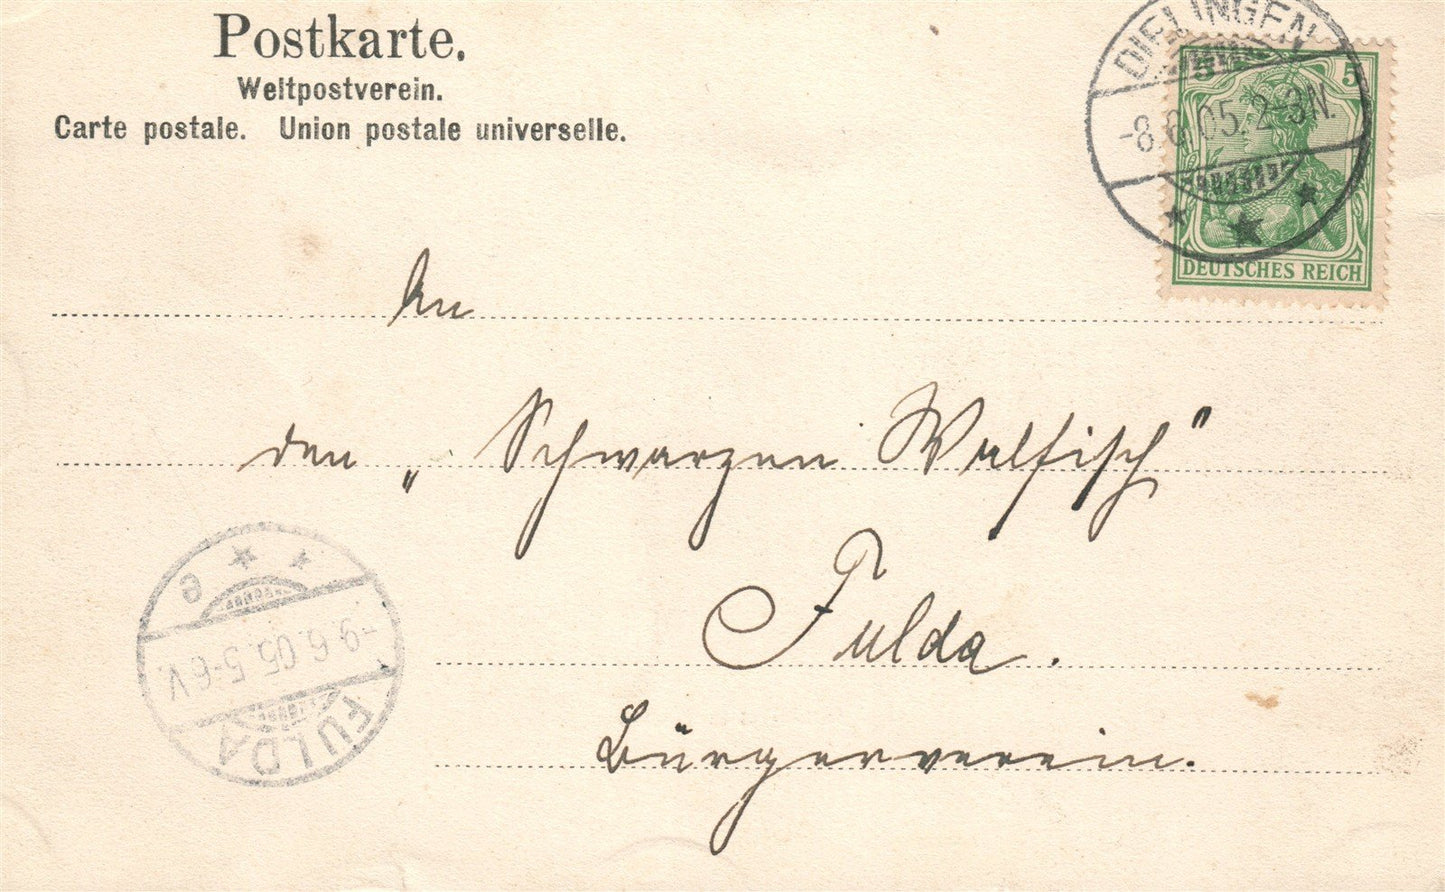 Postkarte.
Weltpostverein.
Carte postale. Union postale universelle.
DIELINGEN
-8.6.05.2-3N.
5 5
DEUTSCHES REICH
An
den „Schwarzen Walfisch"
Fulda.
Bürgerverein.
FULDA
-9.6.05.5-6V.
e